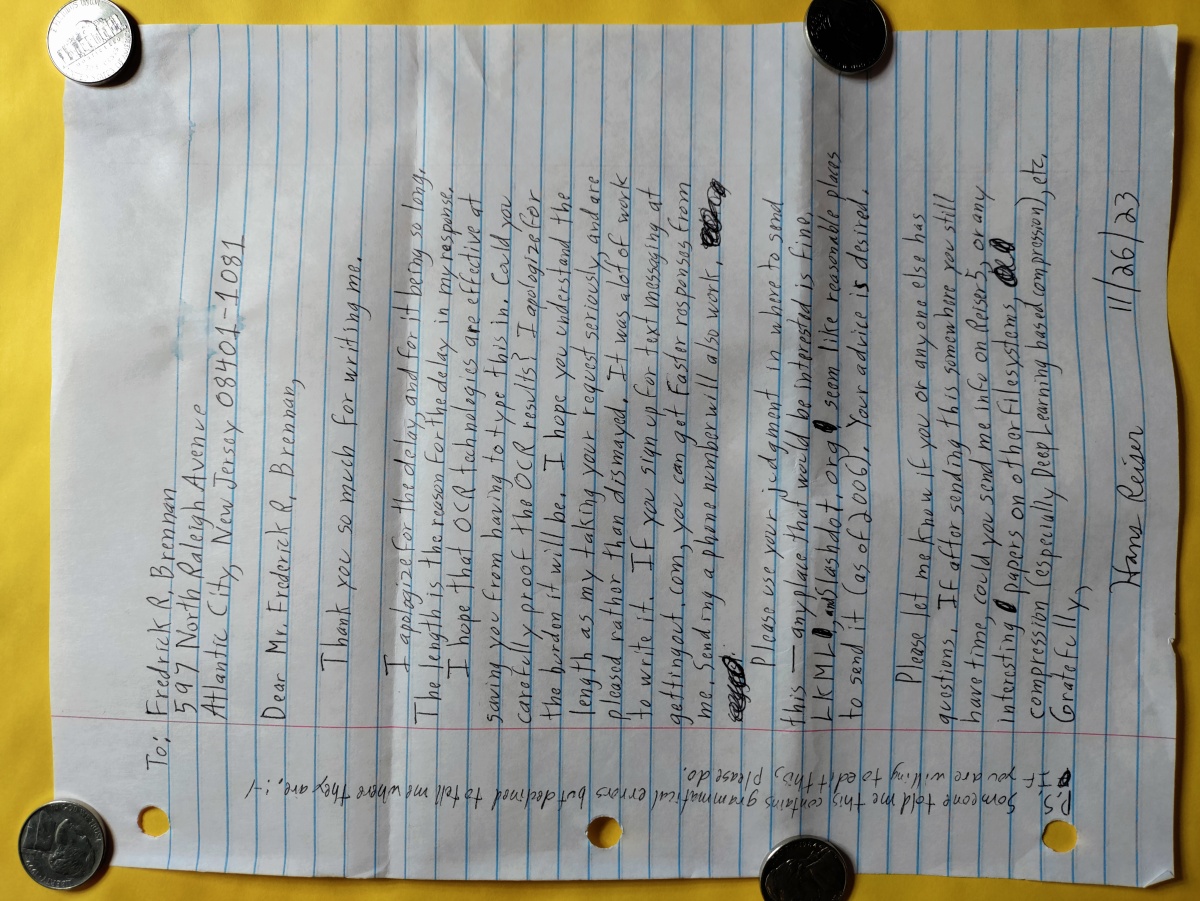 To: Fredrick R. Brennan
597 North Raleigh Avenue
Atlantic City, New Jersey 08401-1081
Dear Mr. Frederick R. Brennan,
Thank you so much for writing me.
I apologize for the delay, and for it being so long.
The length is the reason for the delay in my response.
I hope that OCR technologies are effective at
saving you from having to type this in. Could you
carefully proof the OCR results? I apologize for
the burden it will be. I hope you understand the
length as my taking your request seriously, and are
pleased rather than dismayed. It was a lot of work
to write it. If you sign up for text messaging at
gettingout.com, you can get faster responses from
me. Sending a phone number will also work.
Please use your judgment in where to send
this — anyplace that would be interested is fine.
LKML, and Slashdot.org seem like reasonable places
to send it (as of 2006). Your advice is desired.
Please let me know if you or any one else has
questions. If after sending this somewhere you still
have time, could you send me info on Reiser 5, or any
interesting papers on other filesystems
compression (especially Deep Learning based compression), etc.
Gratefully,
Hans Reiser 11/26/23
P.S.
If you are willing to edit this, please do.
Someone told me this contains grammatical errors but declined to tell me where they are. :-/